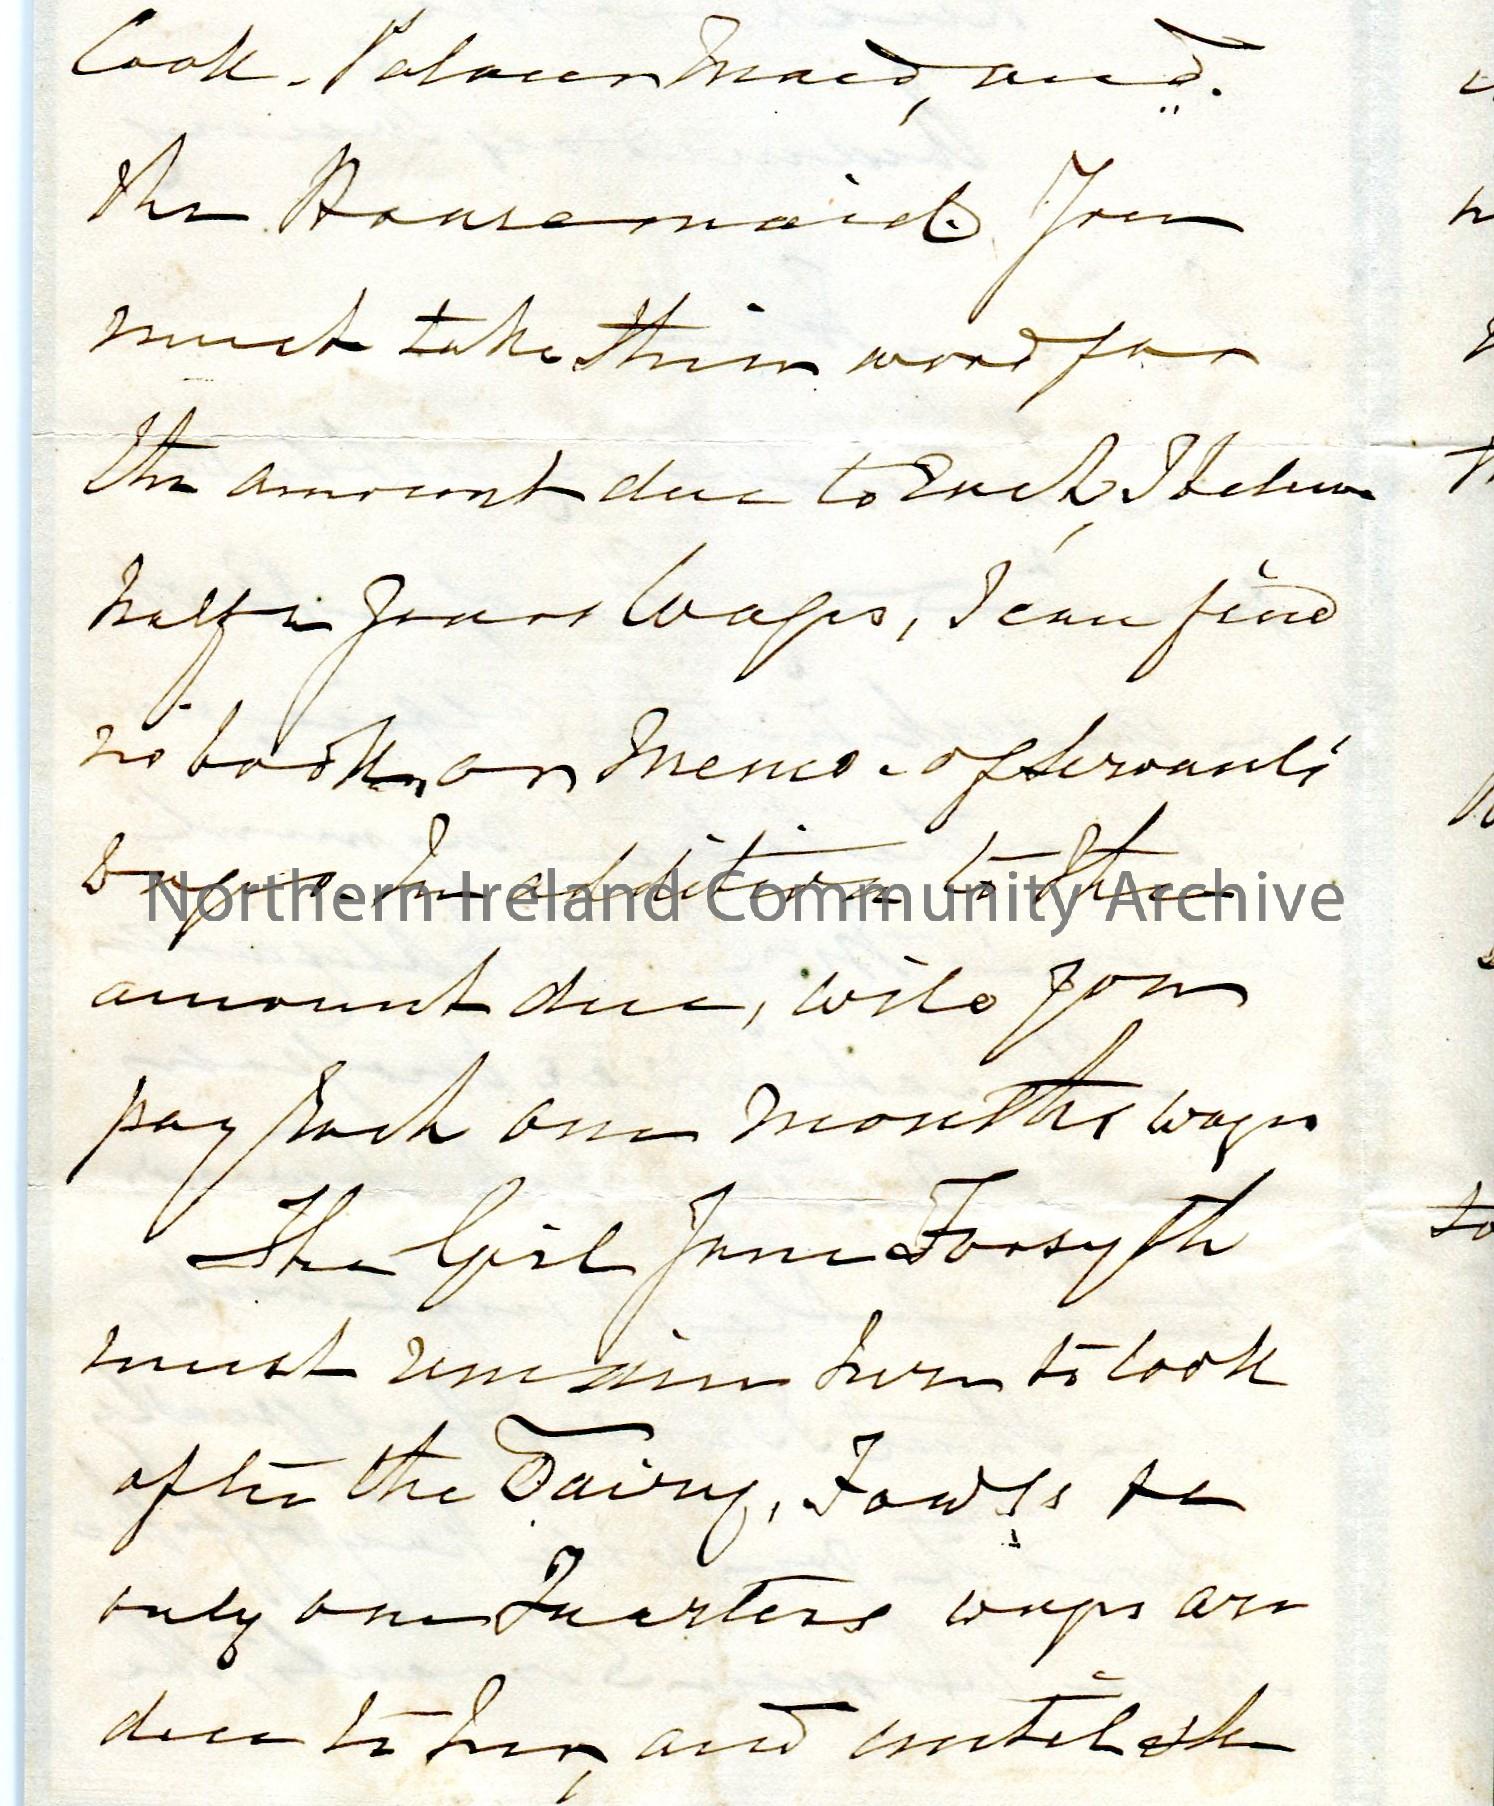 Cook. Palour Maid, and
the Housemaid. You
must take their word for
the amount due to Each, I believe
half a years Wages, I can find
no book, or Memo. of Servants
wages. In addition to the
amount due, will you
pay Each one months wages
The Girl Jane Forsyth
must remain here to look
after the Dairy, Fowls &c
only one Quarters wages are
due to her, and until she
Northern Ireland Community Archive
to